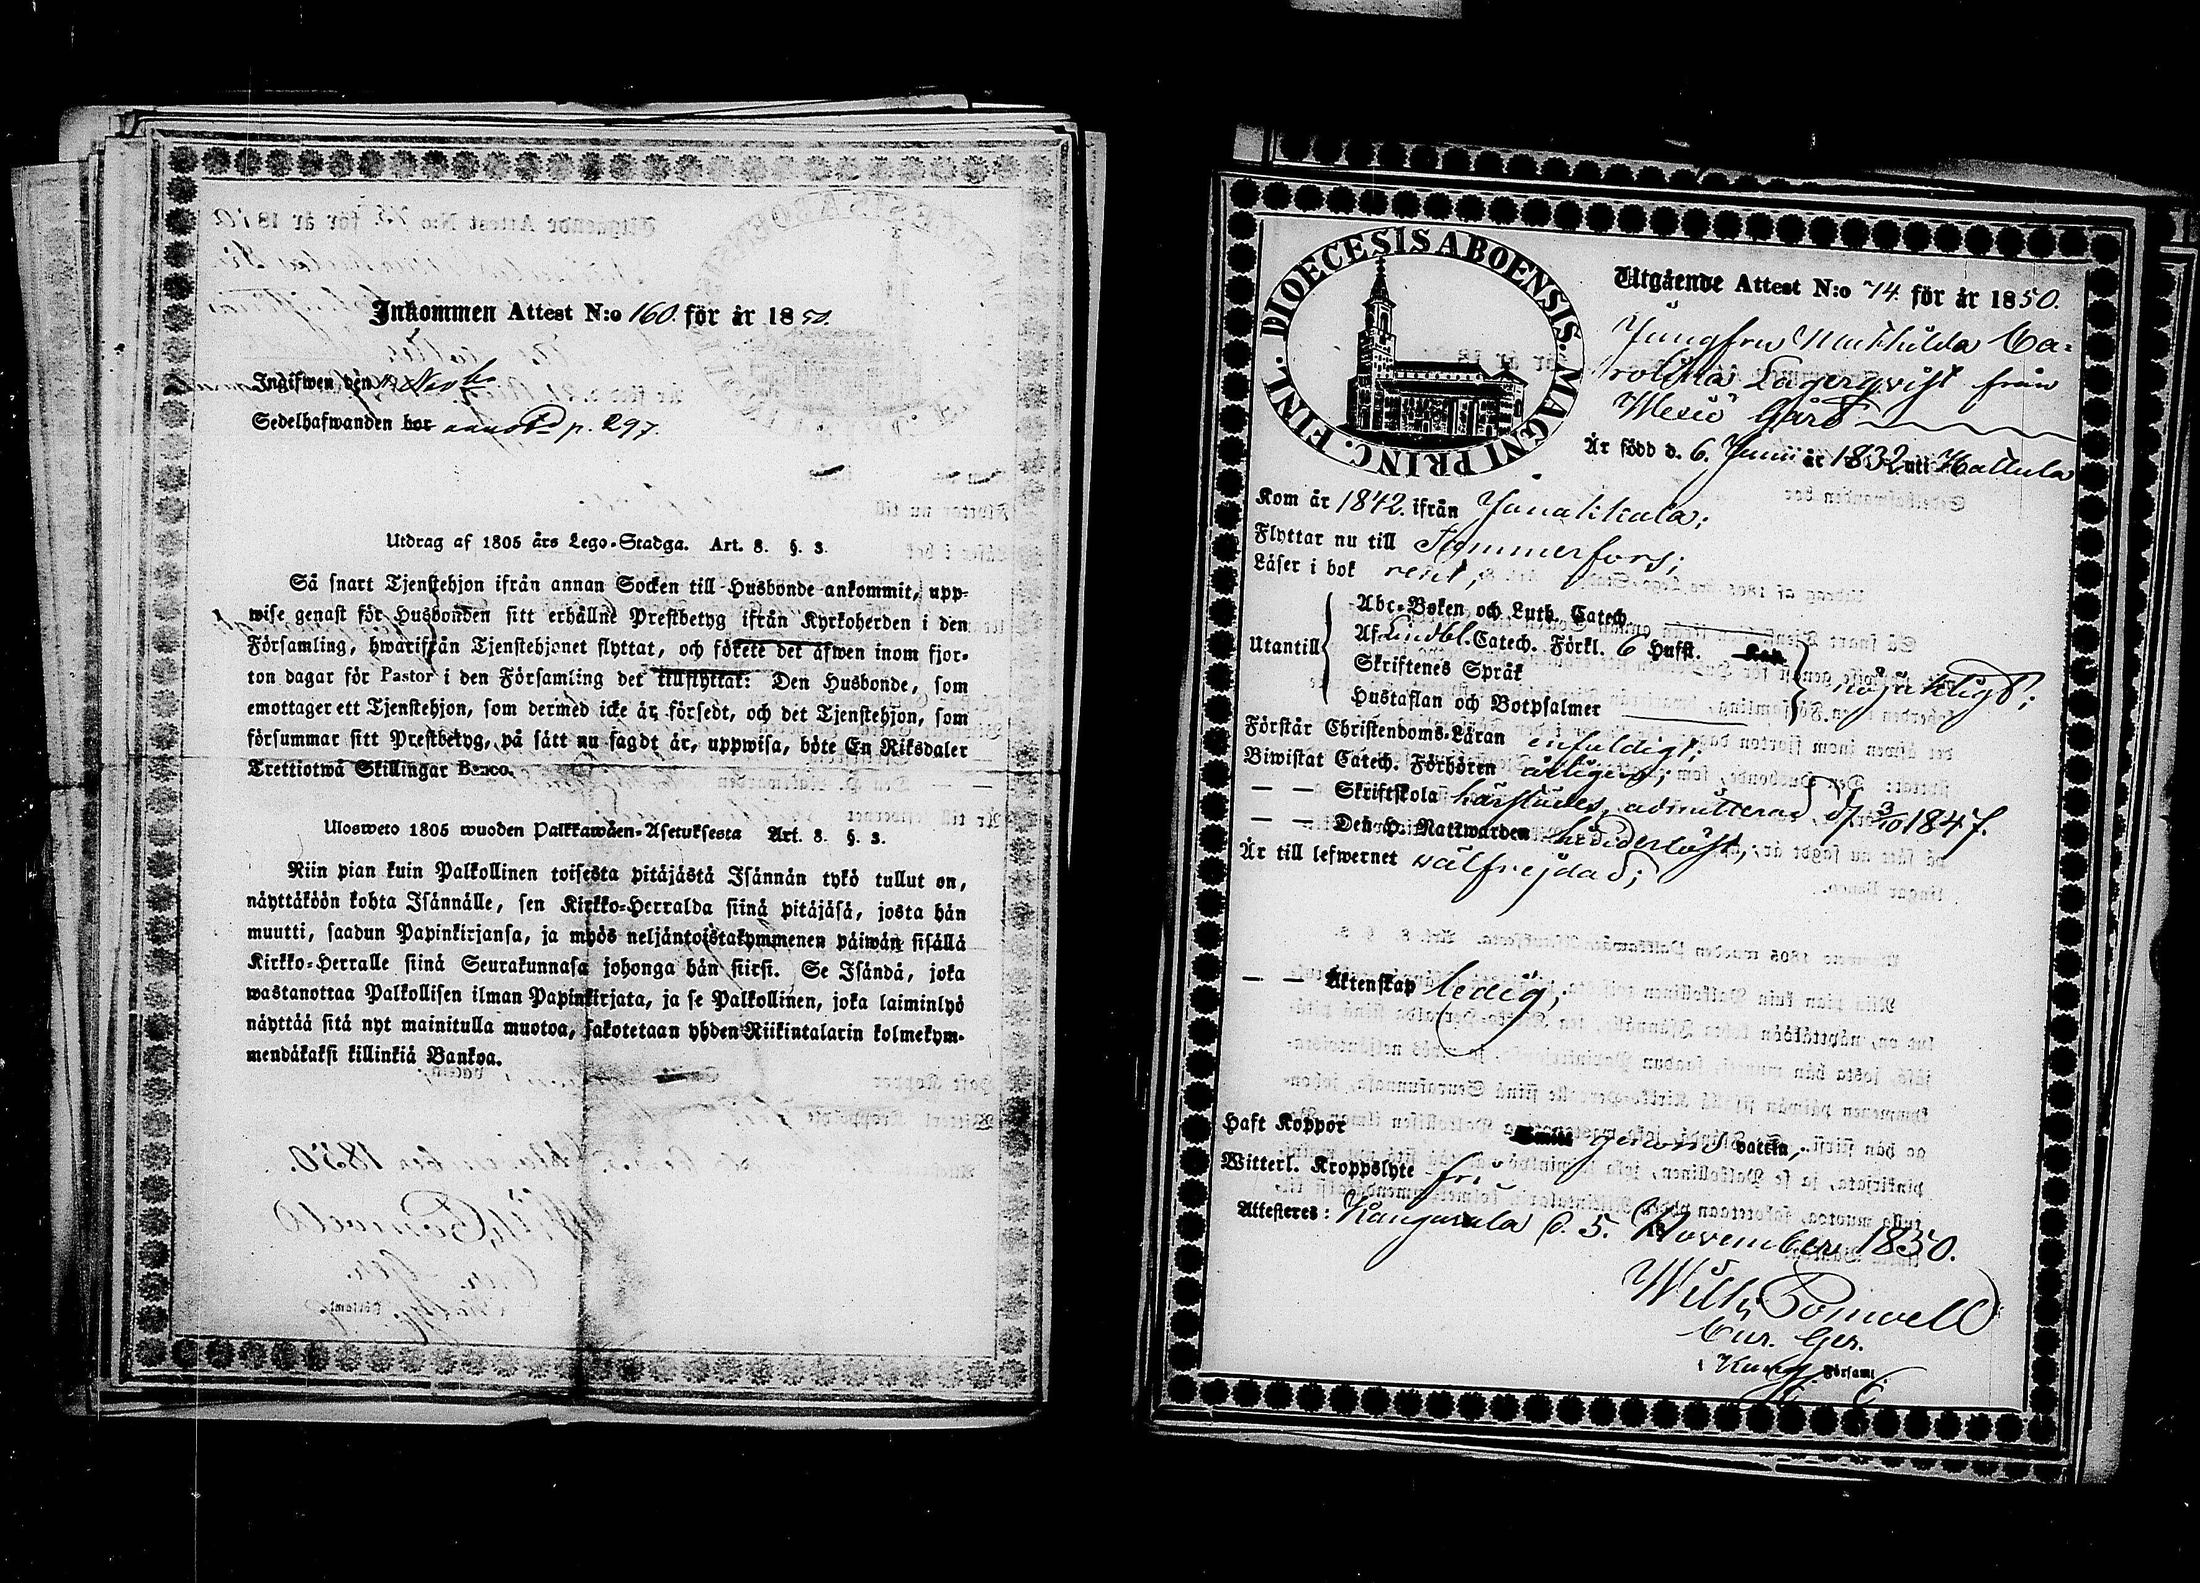 Inkommen Attest N:o 160. för år 1850.
Ingifwen den
Sedelhafwanden bor p. 297.
Utdrag af 1805 års Lego-Stadga. Art. 8. §. 3.
Så snart Tjenstehjon ifrån annan Socken till Husbonde ankommit, upp-
wise genast för Husbonden sitt erhållne Prestbetyg ifrån Kyrkoherden i den
Församling, hwarifrån Tjenstehjonet flyttat, och förete det äfwen inom fjor-
ton dagar för Pastor i den Församling det tillflyttat: Den Husbonde, som
emottager ett Tjenstehjon, som dermed icke är försedt, och det Tjenstehjon, som
försummar sitt Prestbetyg, på sätt nu sagdt är, uppwisa, böte En Riksdaler
Trettiotwå Skillingar Banco.
Ulosweto 1805 wuoden Palkkawäen-Asetuksesta Art. 8. §. 3.
Niin pian kuin Palkollinen toisesta pitäjästä Isännän tykö tullut on,
näyttäköön kohta Isännälle, sen Kirkko-Herralda siinä pitäjäsä, josta hän
muutti, saadun Papinkirjansa, ja myös neljäntoistakymmenen päiwän sisällä
Kirkko-Herralle siinä Seurakunnasa johonga hän siirsi. Se Isändä, joka
wastanottaa Palkollisen ilman Papinkirjata, ja se Palkollinen, joka laiminlyö
näyttää sitä nyt mainitulla muotoa, sakotetaan yhden Riikintalarin kolmekym-
mendäkaksi killinkiä Bankoa.
DIOECESIS ABOENSIS. MAGNI PRINC. FINL.
Utgående Attest N:o 74. för år 1850.
Jungfru Mathilda Ca-
rolina Lagerqvist från
Wesiö Gård
Är född d. 6. Junii år 1832 uti Hattula
Kom år 1842. ifrån Janakkala;
Flyttar nu till Tammerfors;
Läser i bok rent,
Utantill
Abc-Boken och Luth. Catech.
Af Lindbl. Catech. Förkl. 6 Hufst. Kap.
Skriftenes Språk
Hustaflan och Botpsalmer
nöjaktigt;
Förstår Christendoms-Läran enfaldigt;
Biwistat Catech. Förhören årligen;
— — Skriftskola härstädes, admitterad d. 3/10 1847.
— — Den H. Nattwarden
Är till lefwernet välfrejdad;
— — Äktenskap ledig;
Haft Koppor genom vaccin,
Witterl. Kroppslyte fri
Attesteres: Kangasala d. 5. November 1850.
Wilh.
Cur. Ger.
i Kang. Församl.